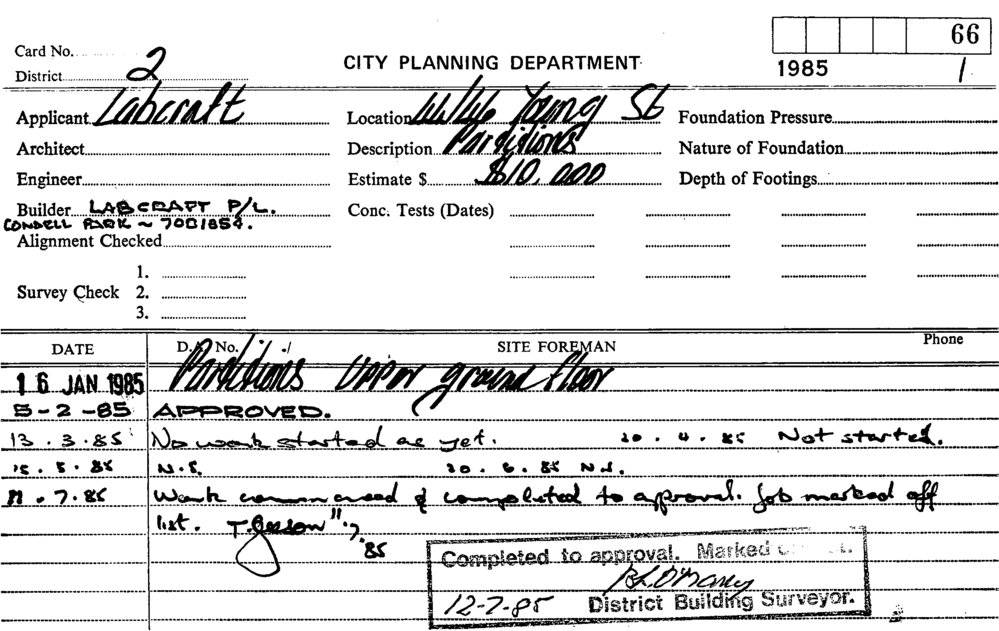 66
Card No.
CITY PLANNING DEPARTMENT
1985 1.
District 2
Applicant Labcraft Location 44/46 Young St Foundation Pressure
Architect Description Partitions Nature of Foundation
Engineer Estimate $ $10,000 Depth of Footings
Builder LABCRAFT P/L. Conc. Tests (Dates)
CONDELL PARK ~ 7081854.
Alignment Checked
1.
Survey Check 2.
3.
DATE D.A. No. ./ SITE FOREMAN Phone
16 JAN 1985 Partitions Upper ground floor
5-2-85 APPROVED.
13.3.85 No work started as yet. 10.4.85 Not started.
15.5.85 N.S. 20.6.85 N.S.
11.7.85 Work commenced & completed to approval. Job marked off
list. 11.7.85
Completed to approval. Marked
12-7-85 District Building Surveyor.